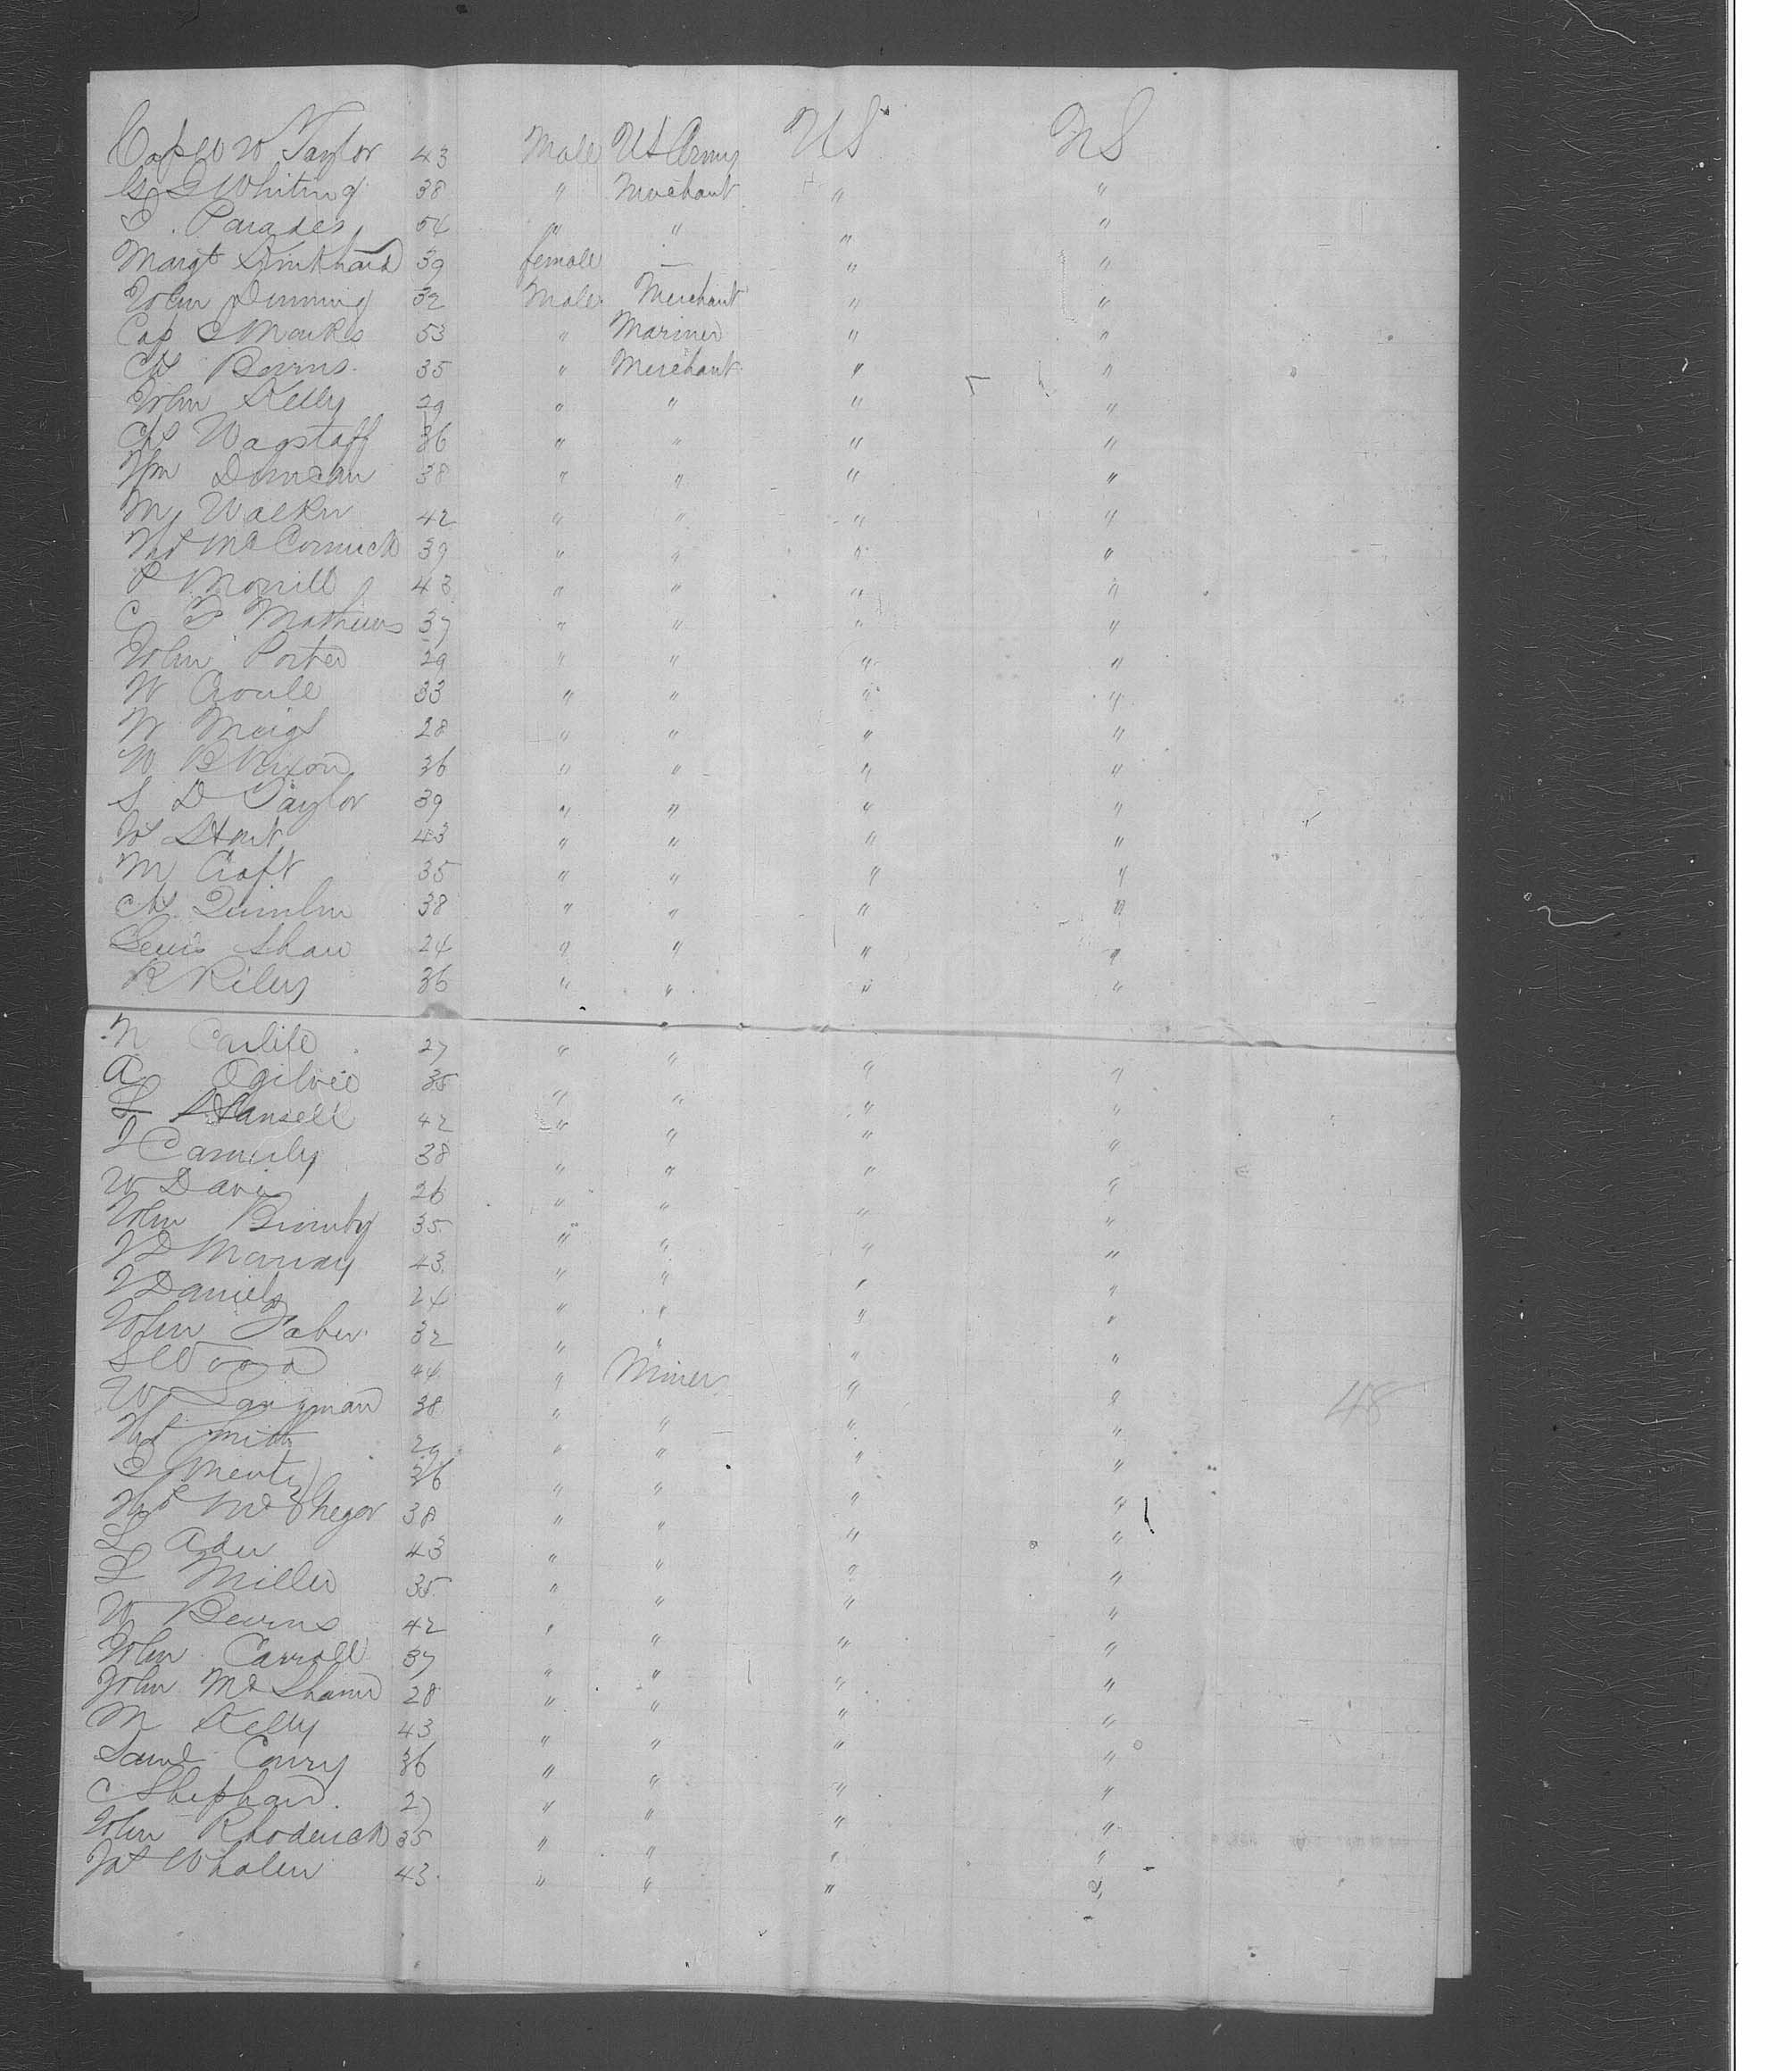 Cap W W Taylor 43 Male US Army US US
G S Whiting 38 " Merchant " "
Parades 54 " " " "
Margt 39 female — " "
John Dinning 32 Male Merchant " "
Cap S Marks 53 " Mariner " "
Chs 35 " Merchant " "
John Kelly 29 " " " "
Chs Wagstaff 36 " " " "
Wm Duncan 38 " " " "
M Walker 42 " " " "
McCormick 39 " " " "
P Morrill 43 " " " "
C Mathews 37 " " " "
John Porter 29 " " " "
W 33 " " " "
W Meigs 28 " " " "
W B Nixon 36 " " " "
S D Taylor 39 " " " "
43 " " " "
M Craft 35 " " " "
Chs Quinlin 38 " " " "
Lewis Shaw 24 " " " "
R Riley 36 " " " "
N Carlile 27 " " " "
A Ogilvie 35 " " " "
Hansell 42 " " " "
38 " " " "
W Davis 26 " " " "
John 35 " " " "
Murray 43 " " " "
Daniels 24 " " " "
John Faber 32 " " " "
S Wood 44 " Miner " "
W 38 " " " "
Smith 29 " " " "
36 " " " "
McGregor 38 " " " "
L Ader 43 " " " "
L Miller 35 " " " "
W 42 " " " "
John Carroll 37 " " " "
John McShane 28 " " " "
M Kelly 43 " " " "
Saml Conry 36 " " " "
C Shephard 27 " " " "
John Rhoderick 35 " " " "
Jas Whalen 43 " " " "
48